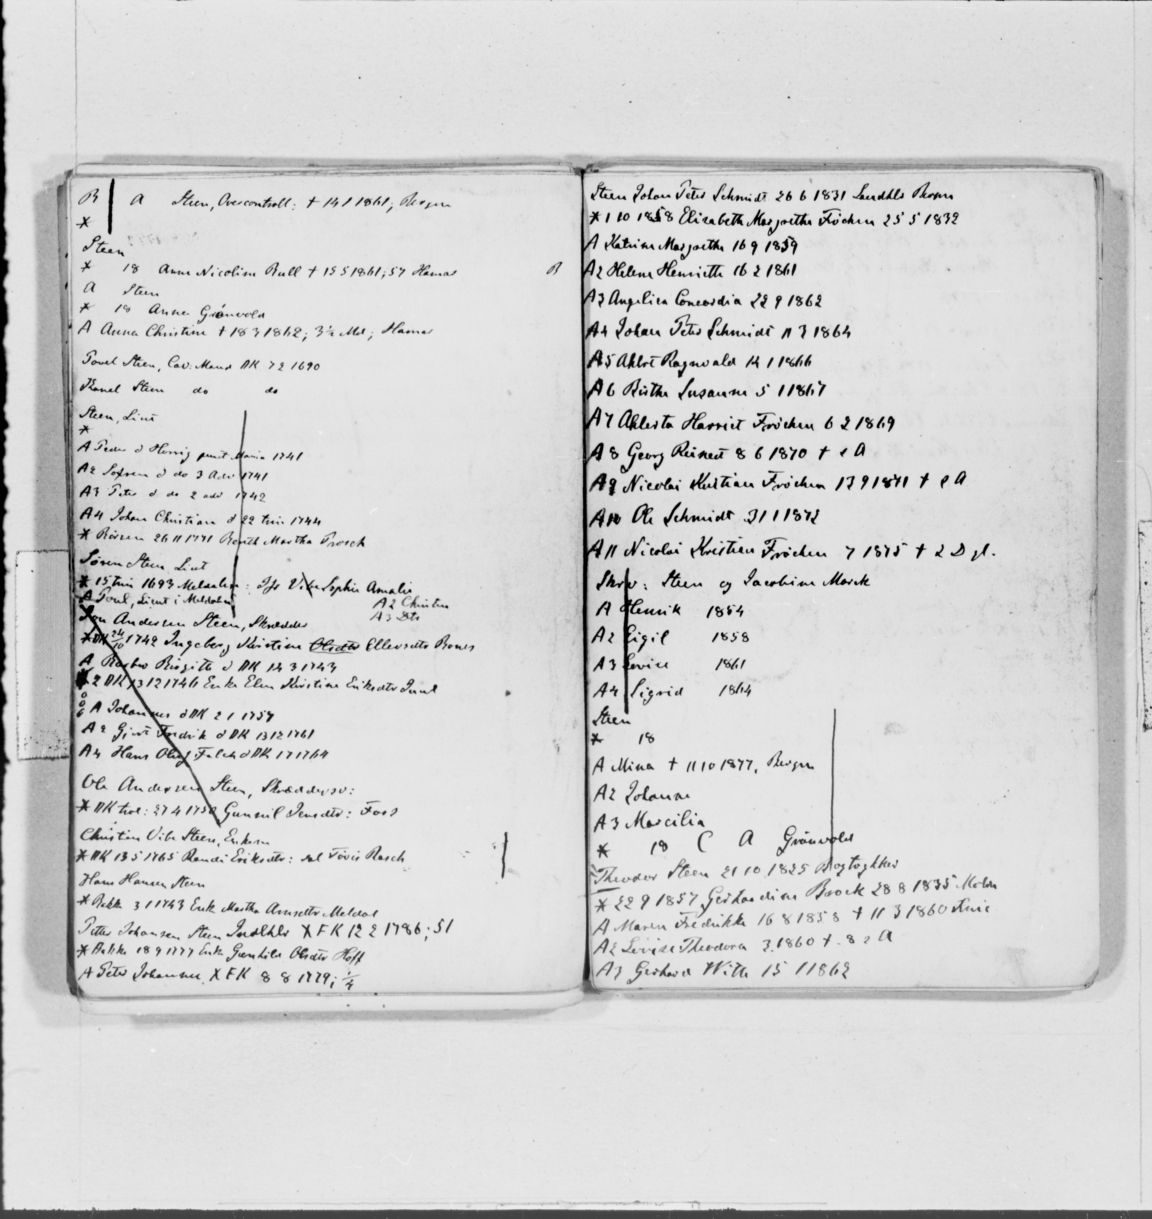 B A Steen, Overcontroll: + 14 1 1861; Bergen
*
Steen
* 18 Anne Nicoline Bull + 15 5 1861; 57 Hamar
A Steen
* 18 Anna Grönvold
A Anna Christine + 18 3 1862; 3½ Md; Hamar
Povel Steen, Cav. Mand DK 7 2 1690
Steen do do
Steen, Lieut
*
A Peder d Horrig Maria 1741
A2 d do 3 Adv 1741
A3 Peter d do 2 adv 1742
A4 Johan Christian d 22 trin 1744
* 26 11 1771 Martha Prosch
Sören Steen Liut
* 15 trin 1693 Sophie Amalie
A Poul, Lieut i Meldalen A2 Christen
A3 Dtr
Andersen Steen, Skrædder
* DK 24/10 1742 Ingeborg Kirstine Olsdtr Ellevsdtr
A Birgitte d DK 14 3 1743
* 2 DK 13 12 1746 Enke Elen Kirstine Eriksdtr
A Johannes d DK 2 1 1757
A2 Fredrik d DK 13 12 1761
A4 Hans Oluf Falch d DK 1 7 1764
Ole Andersen Steen, Skrædder
* DK 27 4 1752 Gunnil Jensdtr: Foss
Christen Vibe Steen, Enkem
* DK 13 5 1765 Randi Eriksdtr: Rasch
Hans Hansen Steen
* 3 1 1763 Enk Martha Arnsdtr Meldal
Peter Johansen Steen X FK 12 2 1786; 51
* 18 9 1777 Enke Gunhild Olsdtr Hoff
A Peter Johannes, X FK 8 8 1779; ¼
B
Steen Johan Peter Schmidt 26 6 1831 Landhdlr Bergen
* 1 10 1858 Elisabeth Margrethe Fröchen 25 5 1832
A Katrine Margrethe 16 9 1859
A2 Helene Henriette 16 2 1861
A3 Angelica Concordia 22 9 1862
A4 Johan Peter Schmidt 11 3 1864
A5 Ahlert Ragnvald 14 1 1866
A6 Birthe Susanne 5 1 1867
A7 Ahlerta Harriet Fröchen 6 2 1869
A8 Georg Reinert 8 6 1870 + A
A9 Nicolai Kristian Fröchen 13 9 1871 + A
A10 Ole Schmidt 31 1 1872
A11 Nicolai Kristian Fröchen 7 1875 + 2 D gl.
Skrv: Steen og Jacobine Marck
A Henrik 1854
A2 Eigil 1858
A3 Lovise 1861
A4 Sigrid 1864
Steen
* 18
A Mina + 11 10 1877, Bergen
A2 Johanne
A3 Marcilia
* 18 C A Grönvold
Theodor Steen 21 10 1825 Bogtrykker
* 22 9 1857 Gerhardine Brock 28 8 1835 Molde
A Maren Fredrikke 16 8 1858 + 11 3 1860
A2 Lovise Theodora 3 1860 + 8 2 A
A3 Gerhard With 15 1 1862